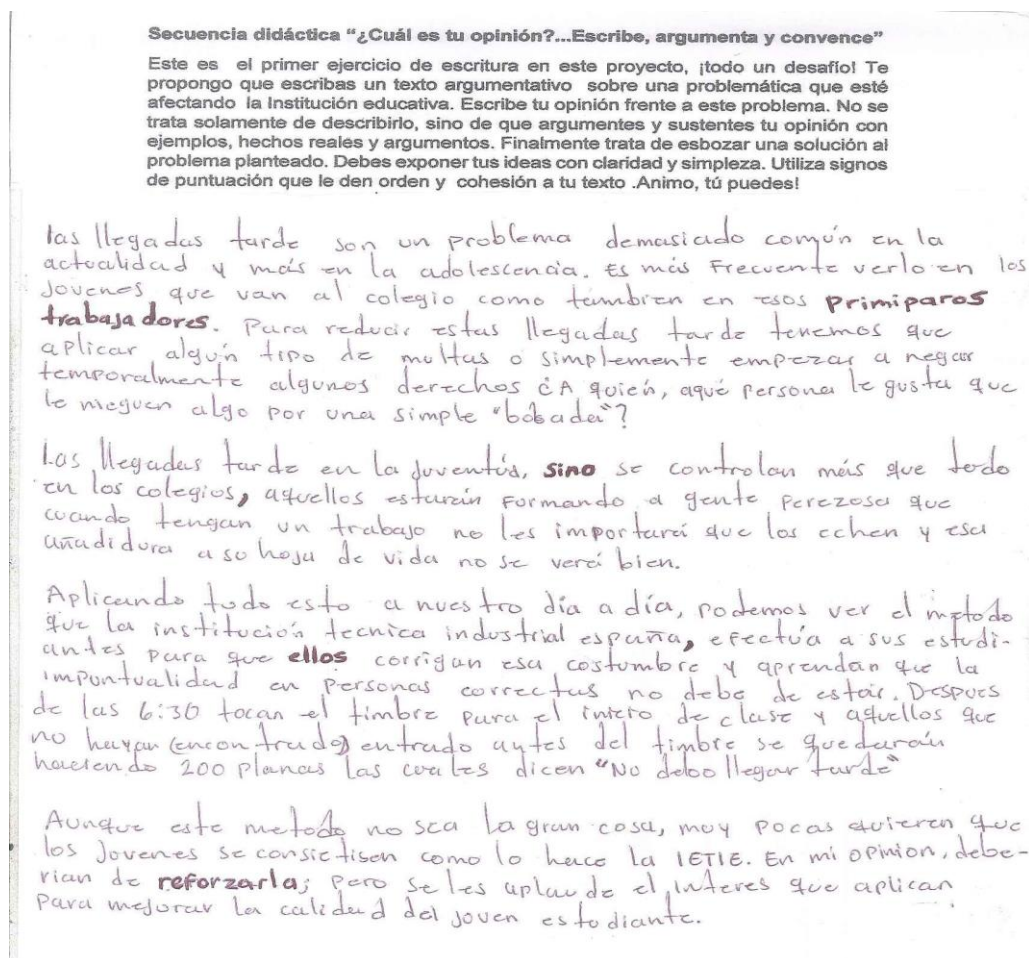 Secuencia didáctica “¿Cuál es tu opinión?...Escribe, argumenta y convence”
Este es el primer ejercicio de escritura en este proyecto, ¡todo un desafío! Te
propongo que escribas un texto argumentativo sobre una problemática que esté
afectando la Institución educativa. Escribe tu opinión frente a este problema. No se
trata solamente de describirlo, sino de que argumentes y sustentes tu opinión con
ejemplos, hechos reales y argumentos. Finalmente trata de esbozar una solución al
problema planteado. Debes exponer tus ideas con claridad y simpleza. Utiliza signos
de puntuación que le den orden y cohesión a tu texto .Animo, tú puedes!
las llegadas tarde son un problema demasiado común en la
actualidad y más en la adolescencia. Es más Frecuente verlo en los
Jovenes que van al colegio como tambien en esos primiparos
trabajadores. Para reducir estas llegadas tarde tenemos que
aplicar algún tipo de multas o simplemente empezar a negar
temporalmente algunos derechos ¿A quién, aqué persona le gusta que
le nieguen algo por una simple "bobada"?
Las llegadas tarde en la juventús, sino se controlan más que todo
en los colegios, aquellos estarán Formando a gente perezosa que
cuando tengan un trabajo no les importará que los echen y esa
añadidura a su hoja de vida no se verá bien.
Aplicando todo esto a nuestro día a día, podemos ver el metodo
que la institución tecnica industrial españa, efectúa a sus estudi-
antes para que ellos corrigan esa costumbre y aprendan que la
impuntualidad en personas correctas no debe de estar. Despues
de las 6:30 tocan el timbre para el inicio de clase y aquellos que
no hayan (encontrado) entrado antes del timbre se quedarán
haciendo 200 planas las cuales dicen "No debo llegar tarde"
Aunque este metodo no sea la gran cosa, muy pocas quieren que
los Jovenes se concieticen como lo hace la IETIE. En mi opinion, debe-
rian de reforzarla; pero se les aplaude el interes que aplican
para mejorar la calidad del joven estudiante.